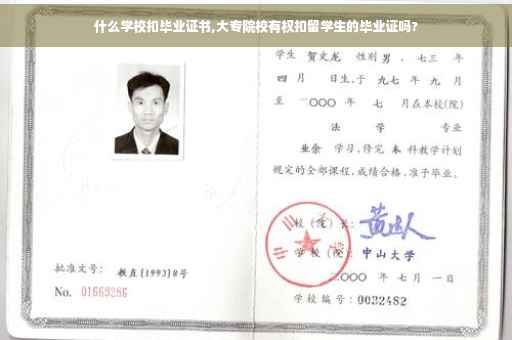 什么学校扣毕业证书,大专院校有权扣留学生的毕业证吗?
学生 贺文龙 性别 男 、七三 年
四 月 日生,于 九七 年 九 月
至 二〇〇〇 年 七 月在本校(院)
法 学 专业
业余 学习,修完 本 科教学计划
规定的全部课程,成绩合格,准予毕业。
校(院)长:
学校(院): 中山大学
二〇〇〇 年 七 月 一 日
学校编号: 0032482
批准文号: 教直[1993]8号
No. 01669286